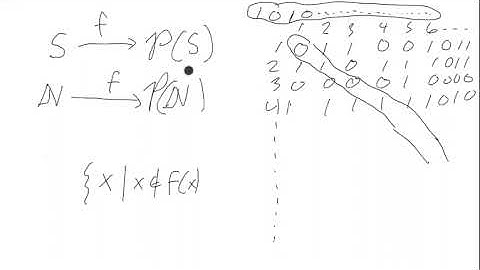 S →f P(S)
N →f P(N)
{x | x ∉ f(x)
1 0 1 0 ........
1 2 3 4 5 6 ....
1 0 1 1 0 0 1 0 1 1
2 1 1 0 1 1 1 0 1 1
3 0 0 0 0 1 0 0 0 0
4 1 1 1 1 1 1 0 1 0